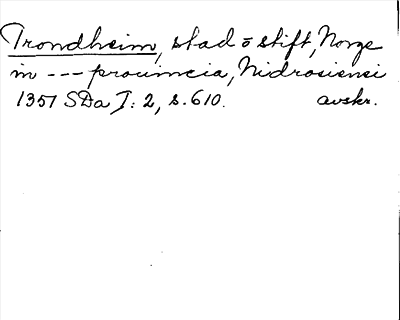 Trondheim, stad o stift, Norge
in --- prouincia, Nidrosiensi
1357 SDa I: 2, s. 610. avskr.